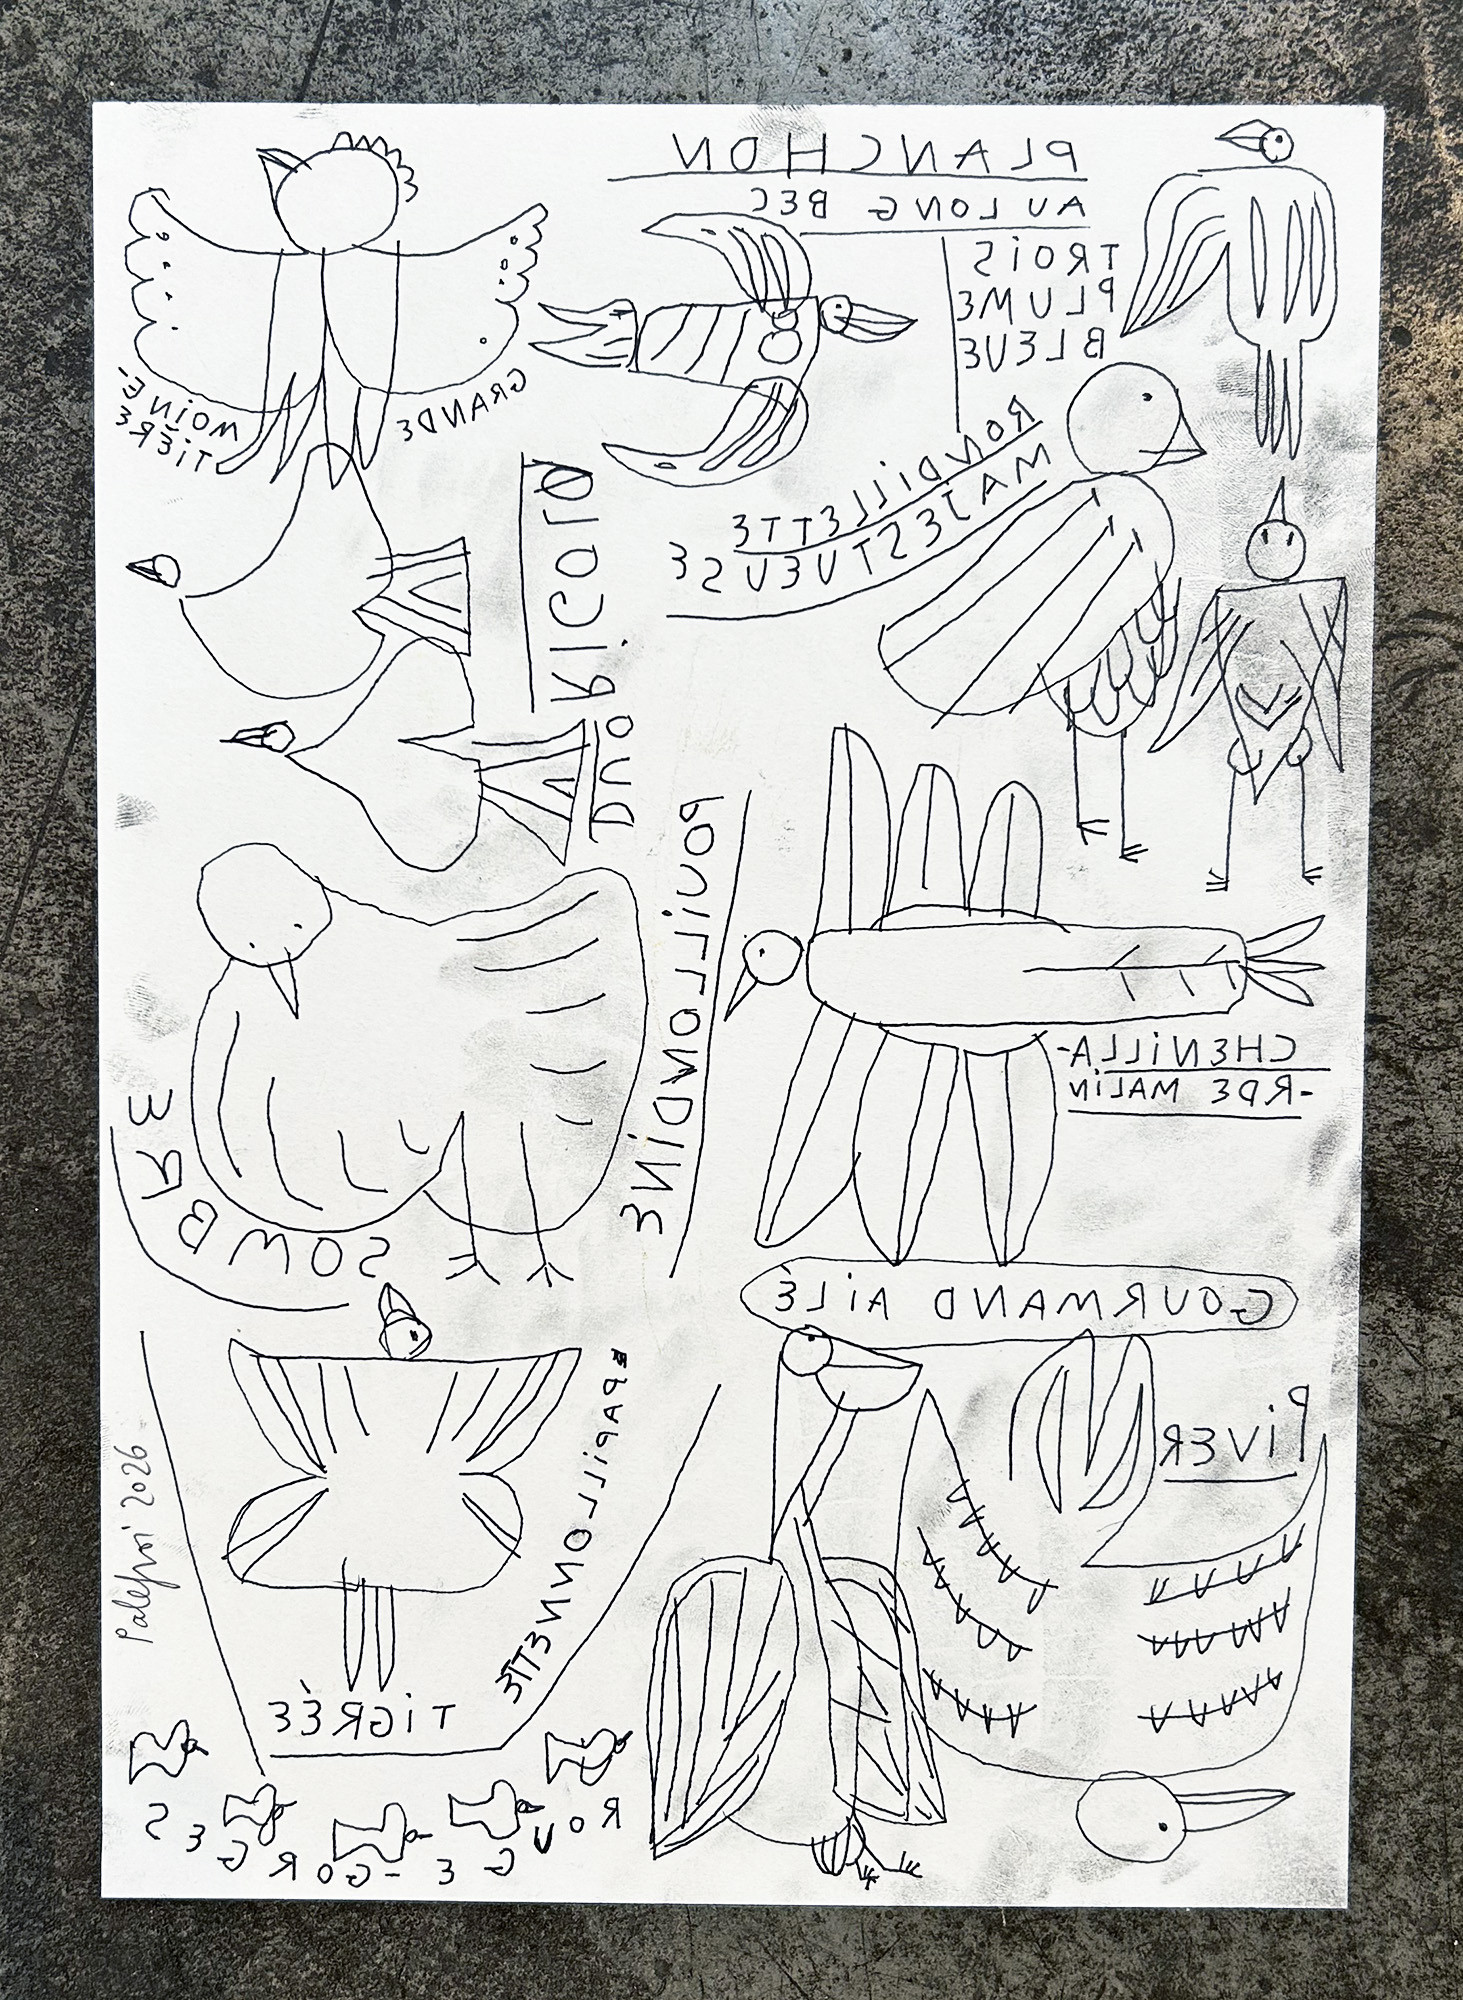 PLANCHON
AU LONG BEC
TROIS
PLUME
BLEUE
GRANDE
MOINE-
TIÈRE
RONDILLETTE
MAJESTUEUSE
DUO RICOLO
POUILLONDINE
SOMBRE
CHENILLA-
-RDE MALIN
GOURMAND AILÉ
PIVER
PAPILLONNETTE
TIGRÉE
ROUGE-GORGES
2026